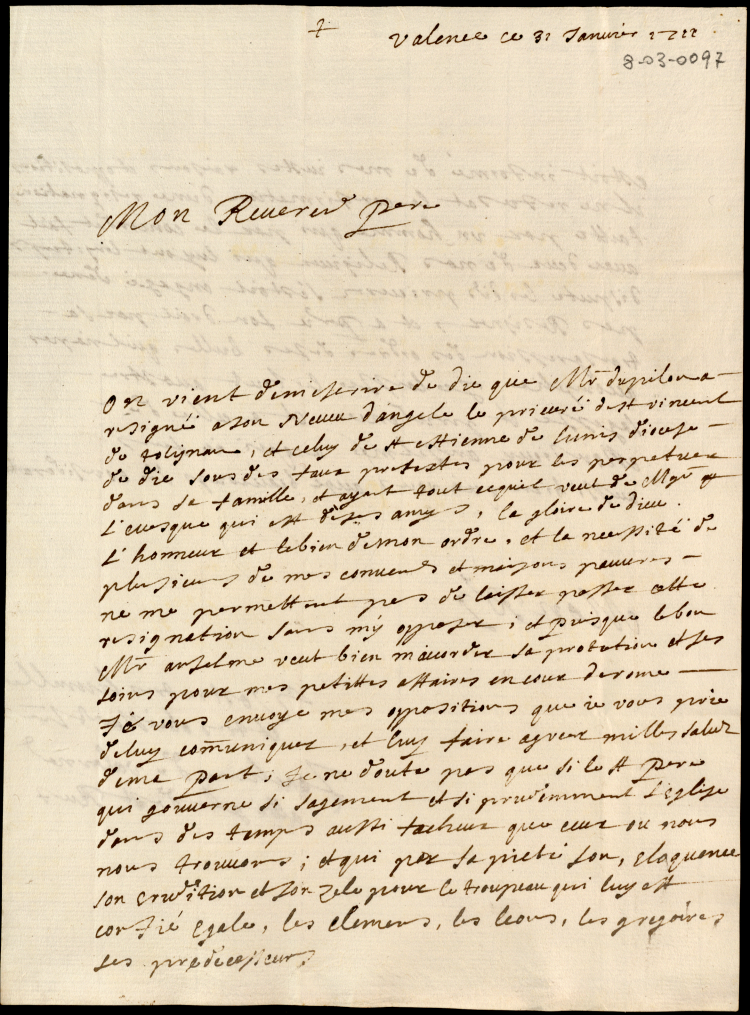 +
Valence ce 31 Janvier 1711
8-03-0097
Mon Reverend pere
On vient de m'escrire de die que Mr dupilon a
resigné a son Neveu d'angele le prieuré de st vincent
de tolignan, et celuy de st estienne de lunis diocese
de die sous des faux pretextes pour les perpetuer
dans sa famille, et ayant tout ce quil veut de Mgr
L'evesque qui est de ses amys, la gloire de dieu.
L'honneur et le bien de mon ordre, et la necessité de
plusieurs de mes convens et maisons pauvres
ne me permettent pas de laisser passer cette
resignation sans m'y opposer; et puisque le bon
Mr anselme veut bien m'accorder sa protection et ses
soins pour mes petittes affaires en cour de rome
Je vous envoye mes oppositions que ie vous prie
de luy communiquer, et luy faire agreer milles saluts
de ma part; Je ne doute pas que si le st pere
qui gouverne si sagement et si prudemment L'eglise
dans des temps aussi facheux que ceux ou nous
nous trouvons; et qui par sa pieté son, Eloquence
son erudition et son zele pour le troupeau qui luy est
confié egale, les clemens, les leons, les gregoires
ses predecesseurs